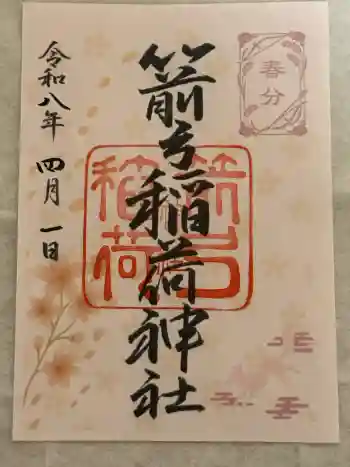 春分
箭弓稲荷神社
箭弓稲荷
令和八年 四月 一日